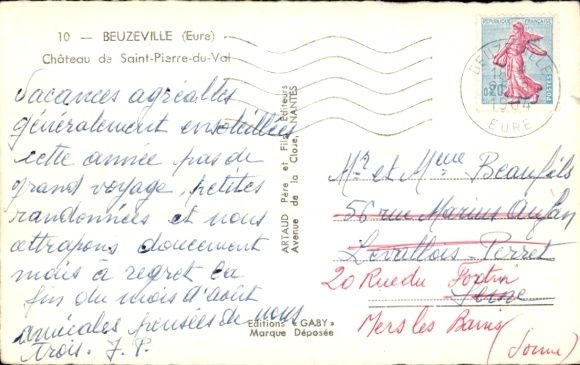 10 — BEUZEVILLE (Eure)
Château de Saint-Pierre-du-Val
Vacances agréables
généralement ensoleillées
cette année pas de
grand voyage, petites
randonnées et nous
attrapons doucement
mais à regret la
fin du mois d'août
amicales pensées de nous
trois. J. P.
ARTAUD Père et Fils, Editeurs
Avenue de la Close, NANTES
Editions « GABY »
Marque Déposée
REPUBLIQUE FRANÇAISE
POSTES
BEUZEVILLE
1964
EURE
Mr et Mme Beaufils
56 rue Marius Aufan
Levallois-Perret
Seine
20 Rue du Fortin
Mers les Bains
(Somme)